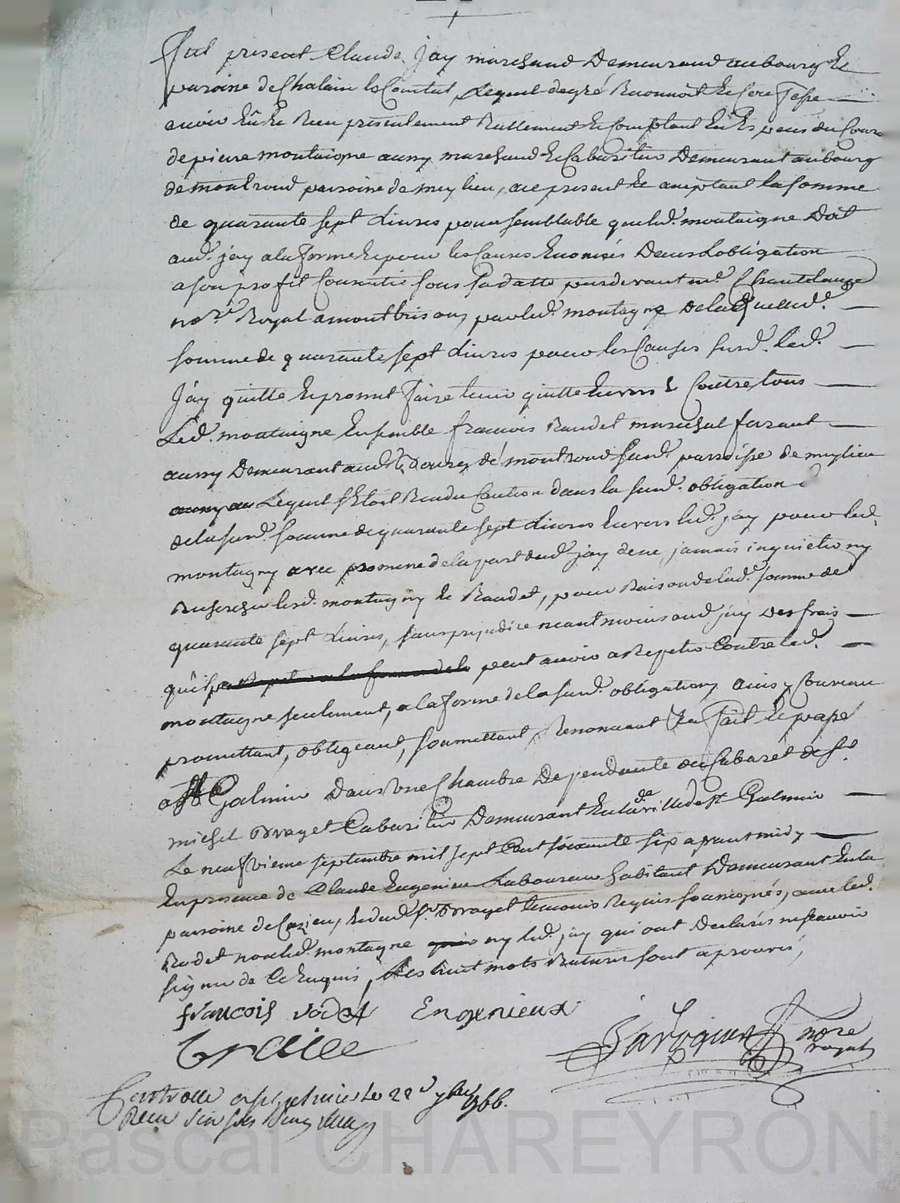 Fut present Claude Jay marchand Demeurand au bourg Et
paroisse de Chalain le Comtal, Lequel degré Reconnoit Et Confesse
avoir Eû Et Receu présentement Reellement Et Comptant En Espece du Cours
de pierre montaigne aussy marchand Et Cabaretier Demeurant au bourg
de montrond paroisse de meylieu, ace present Et acceptant la somme
de quarante sept Livres pour semblable que led. montaigne Doit
aud. jay a la forme Et pour les causes Enoncées Dans Lobligation
a son profit Consentie sous sa datte pardevant me. Chantelauze
nore. Royal a montbrison, par led. montagne De laquelle d.
somme de quarante sept Livres pour les Causes susd. led.
Jay quitte Et promet faire tenir quitte Envers Et Contre tous
Led. montaigne Ensemble francois Raudet marechal ferrant
aussy Demeurant aud. bourg de montrond susd. parroisse de meylieu
au Lequel S'Etoit Rendu Caution dans la susd. obligation
de la susd. somme de quarante sept Livres Envers led. jay pour led.
montagny avec promesse de la part dud. jay de ne jamais inquieter ny
Rechercher lesd. montagny Et Raudet, pour Raison de lad. somme de
quarante sept Livres, sans prejudice neantmoins aud. jay Des frais
qu'il peut avoir a Repeter Contre led.
montagne seulement, a la forme de la susd. obligation, ainsy Convenu
promettant, obligeant, soumettant, Renoncant Fait Et passé
a St Galmier Dans une Chambre Dependante du Cabaret de Sr.
michel Brayet Cabaretier Demeurant En la ville de St Galmier
Le neufvieme septembre mil sept Cent soixante six avant midy
En presence de Claude Engenieu Laboureur habitant Demeurant En la
paroisse de Cuzieu, Et dud. Sr Brayet temoins Requis soussignés, avec led.
Rodet non led. montagne ny led. jay qui ont Declarés ne scavoir
signer de Ce Enquis, Les huit mots Raturés sont aprouvés,
françois rodet Engenieux
Braiee
nore
royal
Controllé a St galmier Le 22e 7bre 1766.
Receu
Pascal CHAREYRON